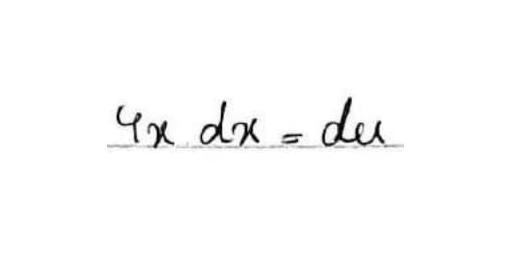 4x dx = du